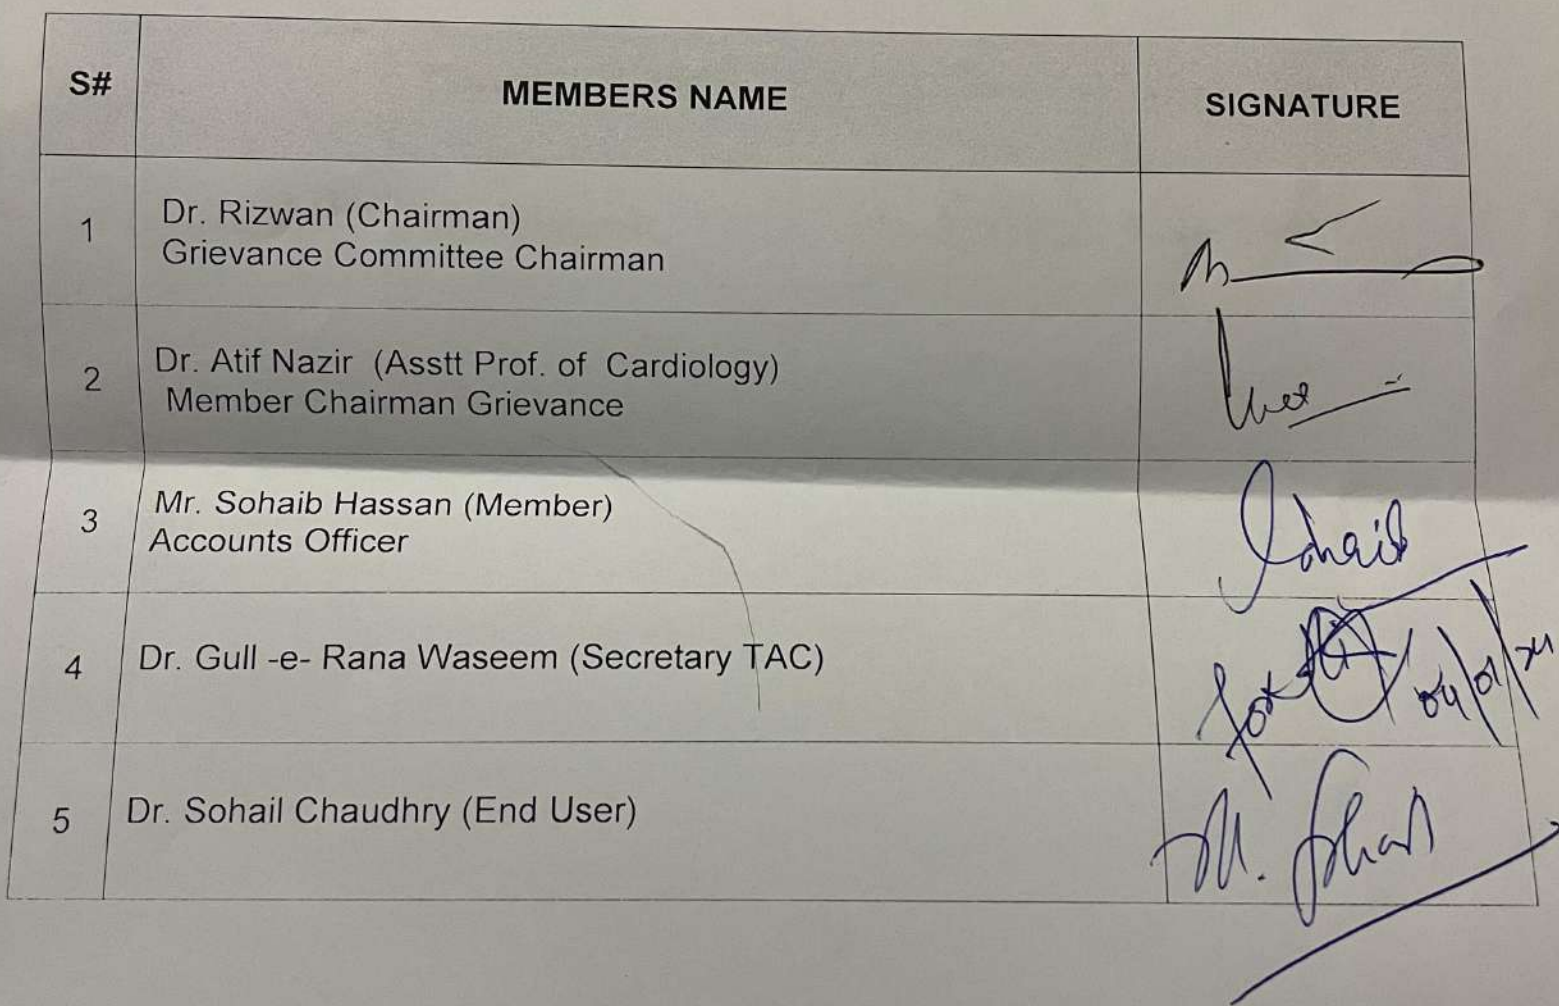 S# MEMBERS NAME SIGNATURE
1 Dr. Rizwan (Chairman)
Grievance Committee Chairman
2 Dr. Atif Nazir (Asstt Prof. of Cardiology)
Member Chairman Grievance
3 Mr. Sohaib Hassan (Member)
Accounts Officer
Sohaib
4 Dr. Gull -e- Rana Waseem (Secretary TAC)
for 04/01/24
5 Dr. Sohail Chaudhry (End User)
M. Sohail